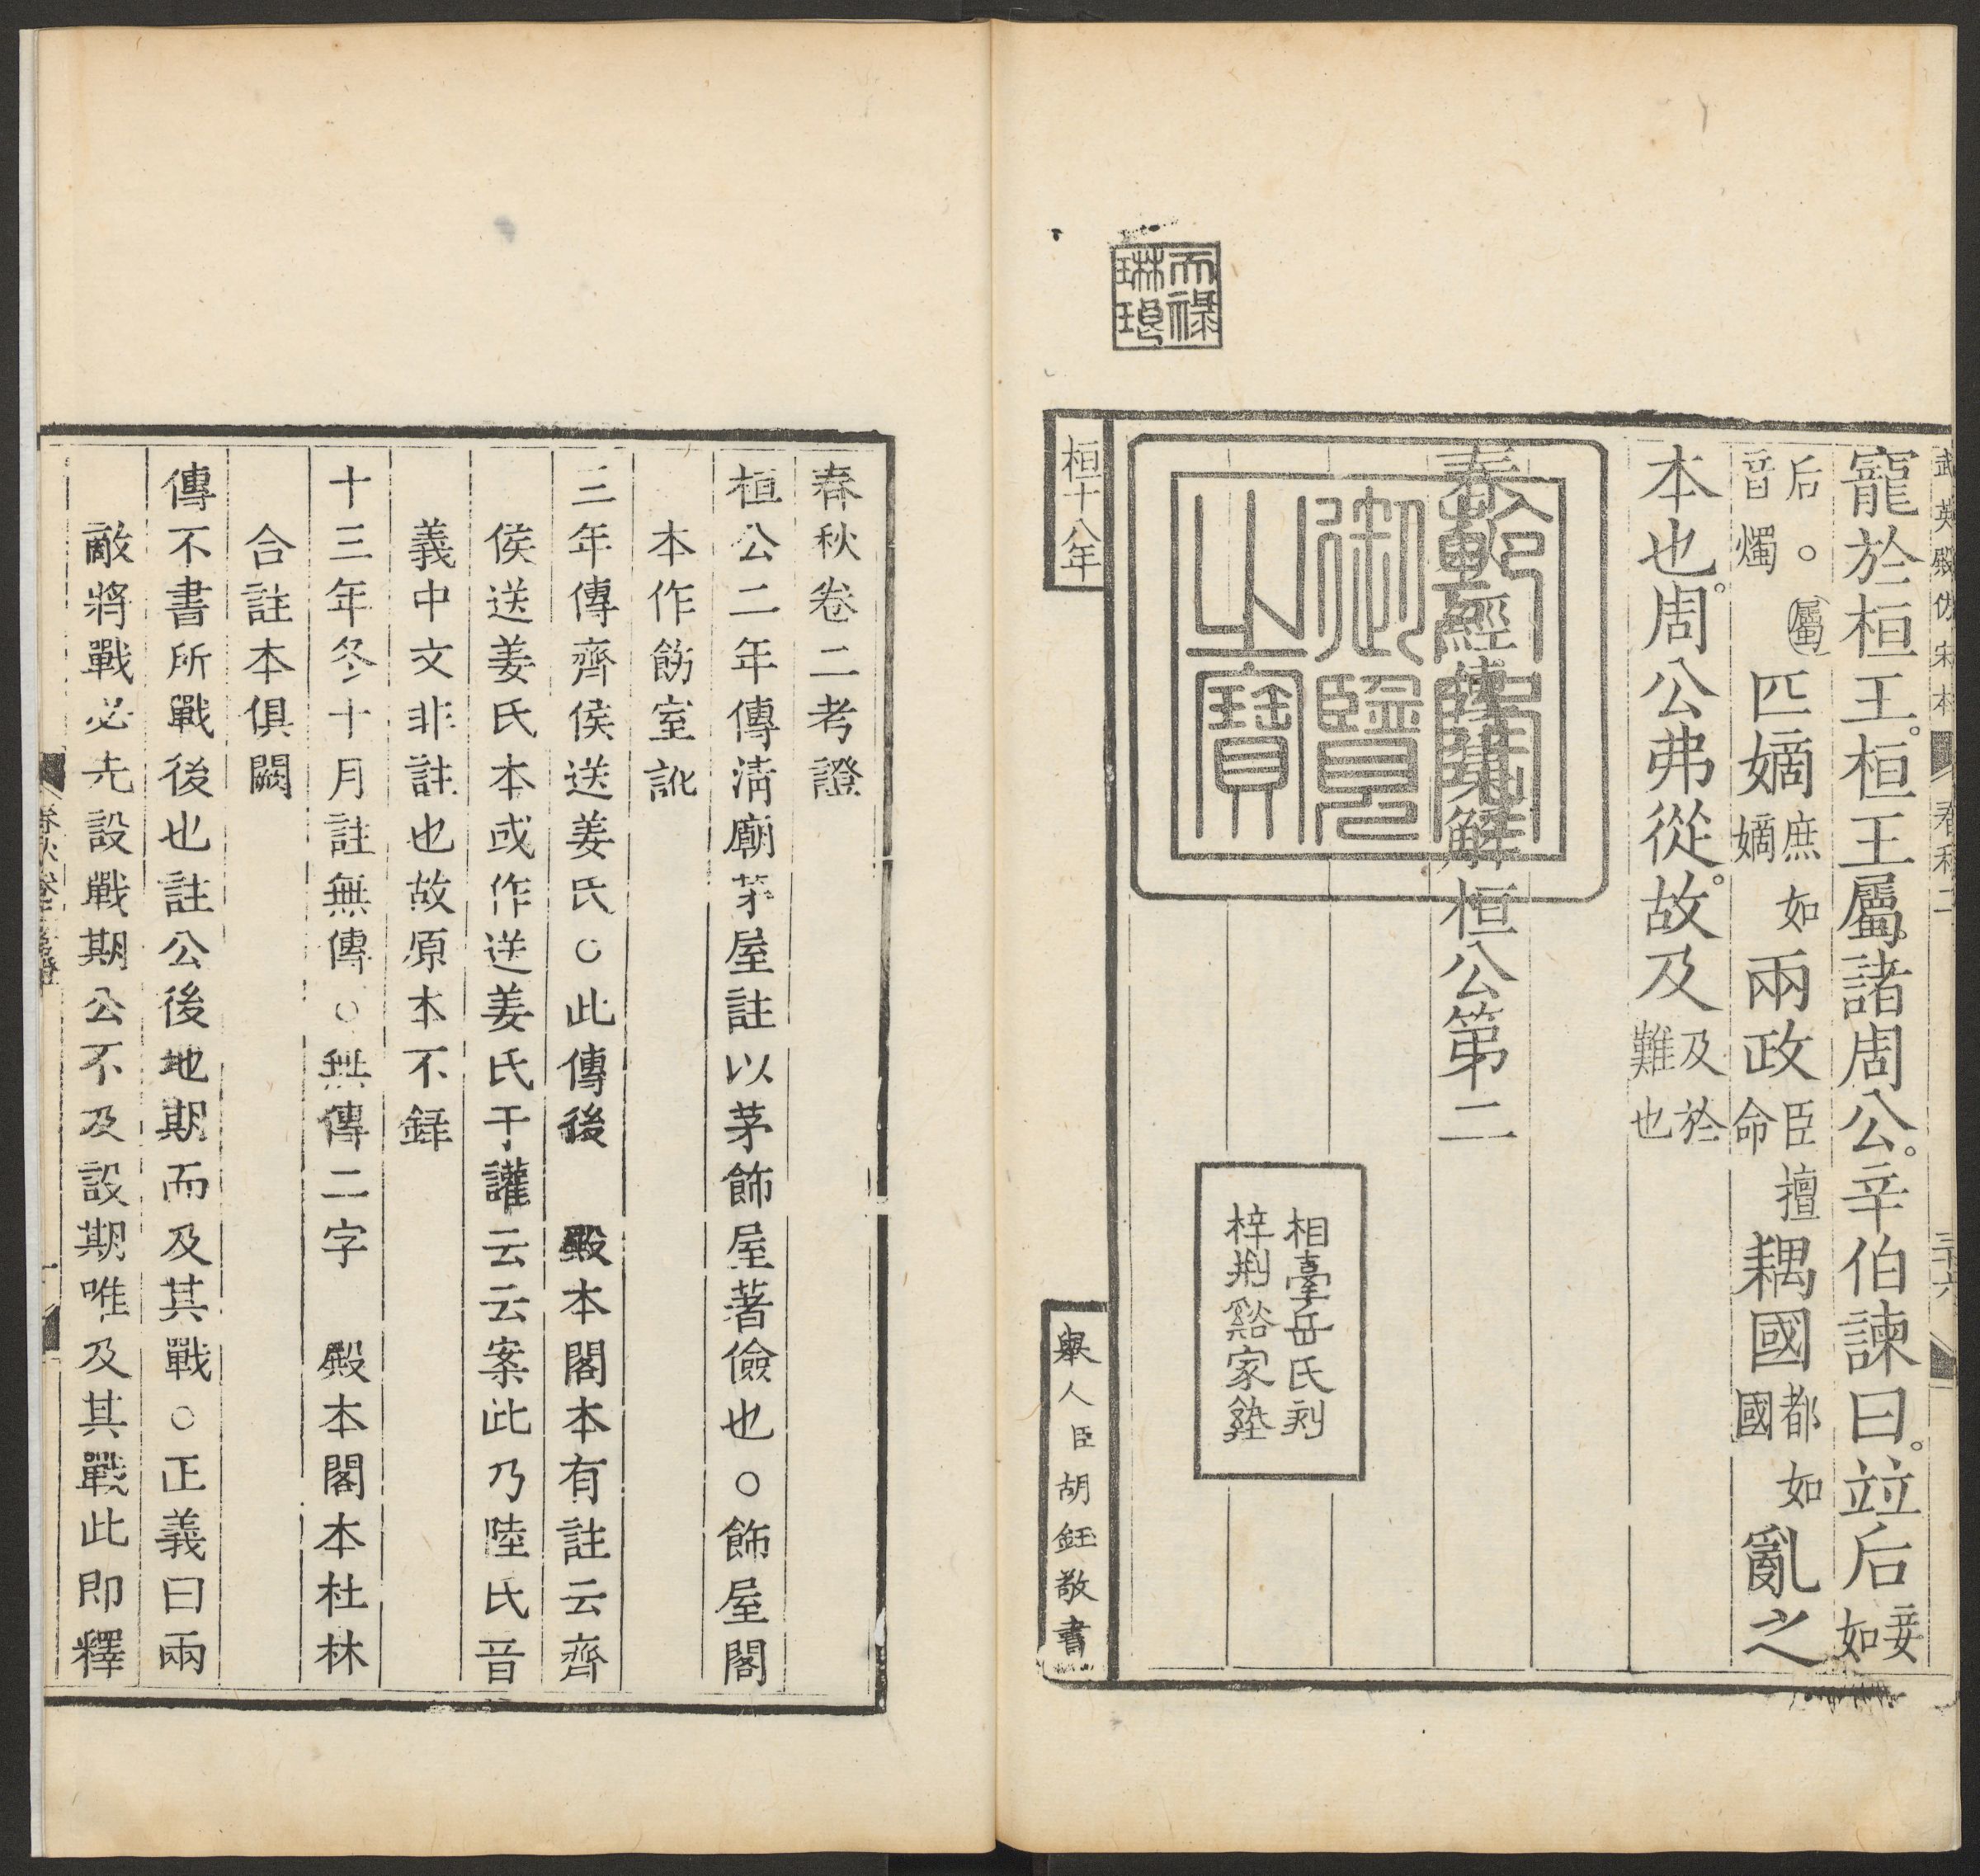 武英殿仿宋本 春秋二 三十六
寵於桓王。桓王屬諸周公。辛伯諫曰。竝后妾如
后。○屬音燭匹嫡庶如嫡兩政臣擅命耦國都如國亂之
本也。周公弗從。故及及於難也
春秋經傳集解桓公第二
相臺岳氏刻
梓荆谿家塾
桓十八年
舉人臣胡鈺敬書
天祿
琳琅
乾隆
御覽
之寶
春秋卷二考證
桓公二年傳淸廟茅屋註以茅飾屋著儉也○飾屋閣
本作飭室訛
三年傳齊侯送姜氏○此傳後 殿本閣本有註云齊
侯送姜氏本或作送姜氏于讙云云案此乃陸氏音
義中文非註也故原本不錄
十三年冬十月註無傳○無傳二字 殿本閣本杜林
合註本俱闕
傳不書所戰後也註公後地期而及其戰○正義曰兩
敵將戰必先設戰期公不及設期唯及其戰此即釋
春秋卷二考證 一